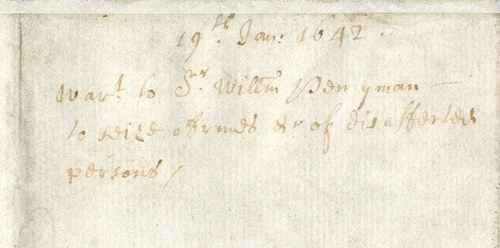 19th Jan: 1642.
Wart to Sr Willm Pennyman
to seize Armes &c of disaffected
persons /